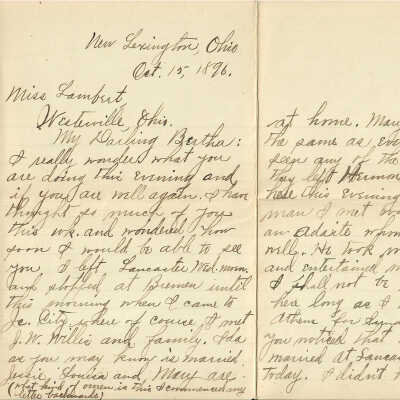 New Lexington, Ohio
Oct. 15, 1896.
Miss Lambert,
Westerville Ohio.
My Darling Bertha:
I really wonder what you
are doing this evening and
if you are well again. I have
thought so much of you
this wk. and wondered how
soon I would be able to see
you. I left Lancaster Wed. morn.
and stopped at Bremen until
this morning when I came to
Jc. City where of course I met
J. W. Willis and family. Ida
as you may know is married.
Jessie, Louisa and Mary are
(what kind of organ is this I commenced my
letter backwards)
at home. Mary
the same as ev
seen any of the
they left
here this evening
man I met w
an
welly. He took m
and entertained m
I shall not be
here long as I
Athens for
you noticed that
married at Lanca
today. I didn't